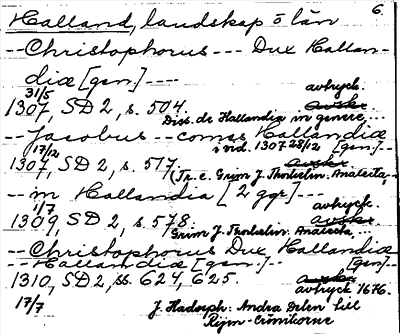 Halland, landskap o län 6.
-- Christophorus --- Dux Hallan-
diæ [gen.] ----
31/5 avtryck.
1307, SD 2, s. 504. avskr.
Diss. de Hallandia in genere...
-- Jacobus -- comes Hallandiæ
17/12 ind. 1307 28/12 [gen.] --
1307, SD 2, s. 517. avskr.
(Tr. e. Grim J. Thorkelin. Analecta,
-- in Hallandia [2 ggr] ---
1/7 avtryck.
1309, SD 2, s. 578. avskr.
Grim J. Thorkelin. Analecta...
-- Christophorus Dux Hallandiæ
-- Hallandiæ [gen.] -- [gen.] --
1310, SD 2, ss. 624, 625. avskr.
avtryck 1676.
17/7 J. Hadorph: Andra Delen till
Rijm-Crönikorne